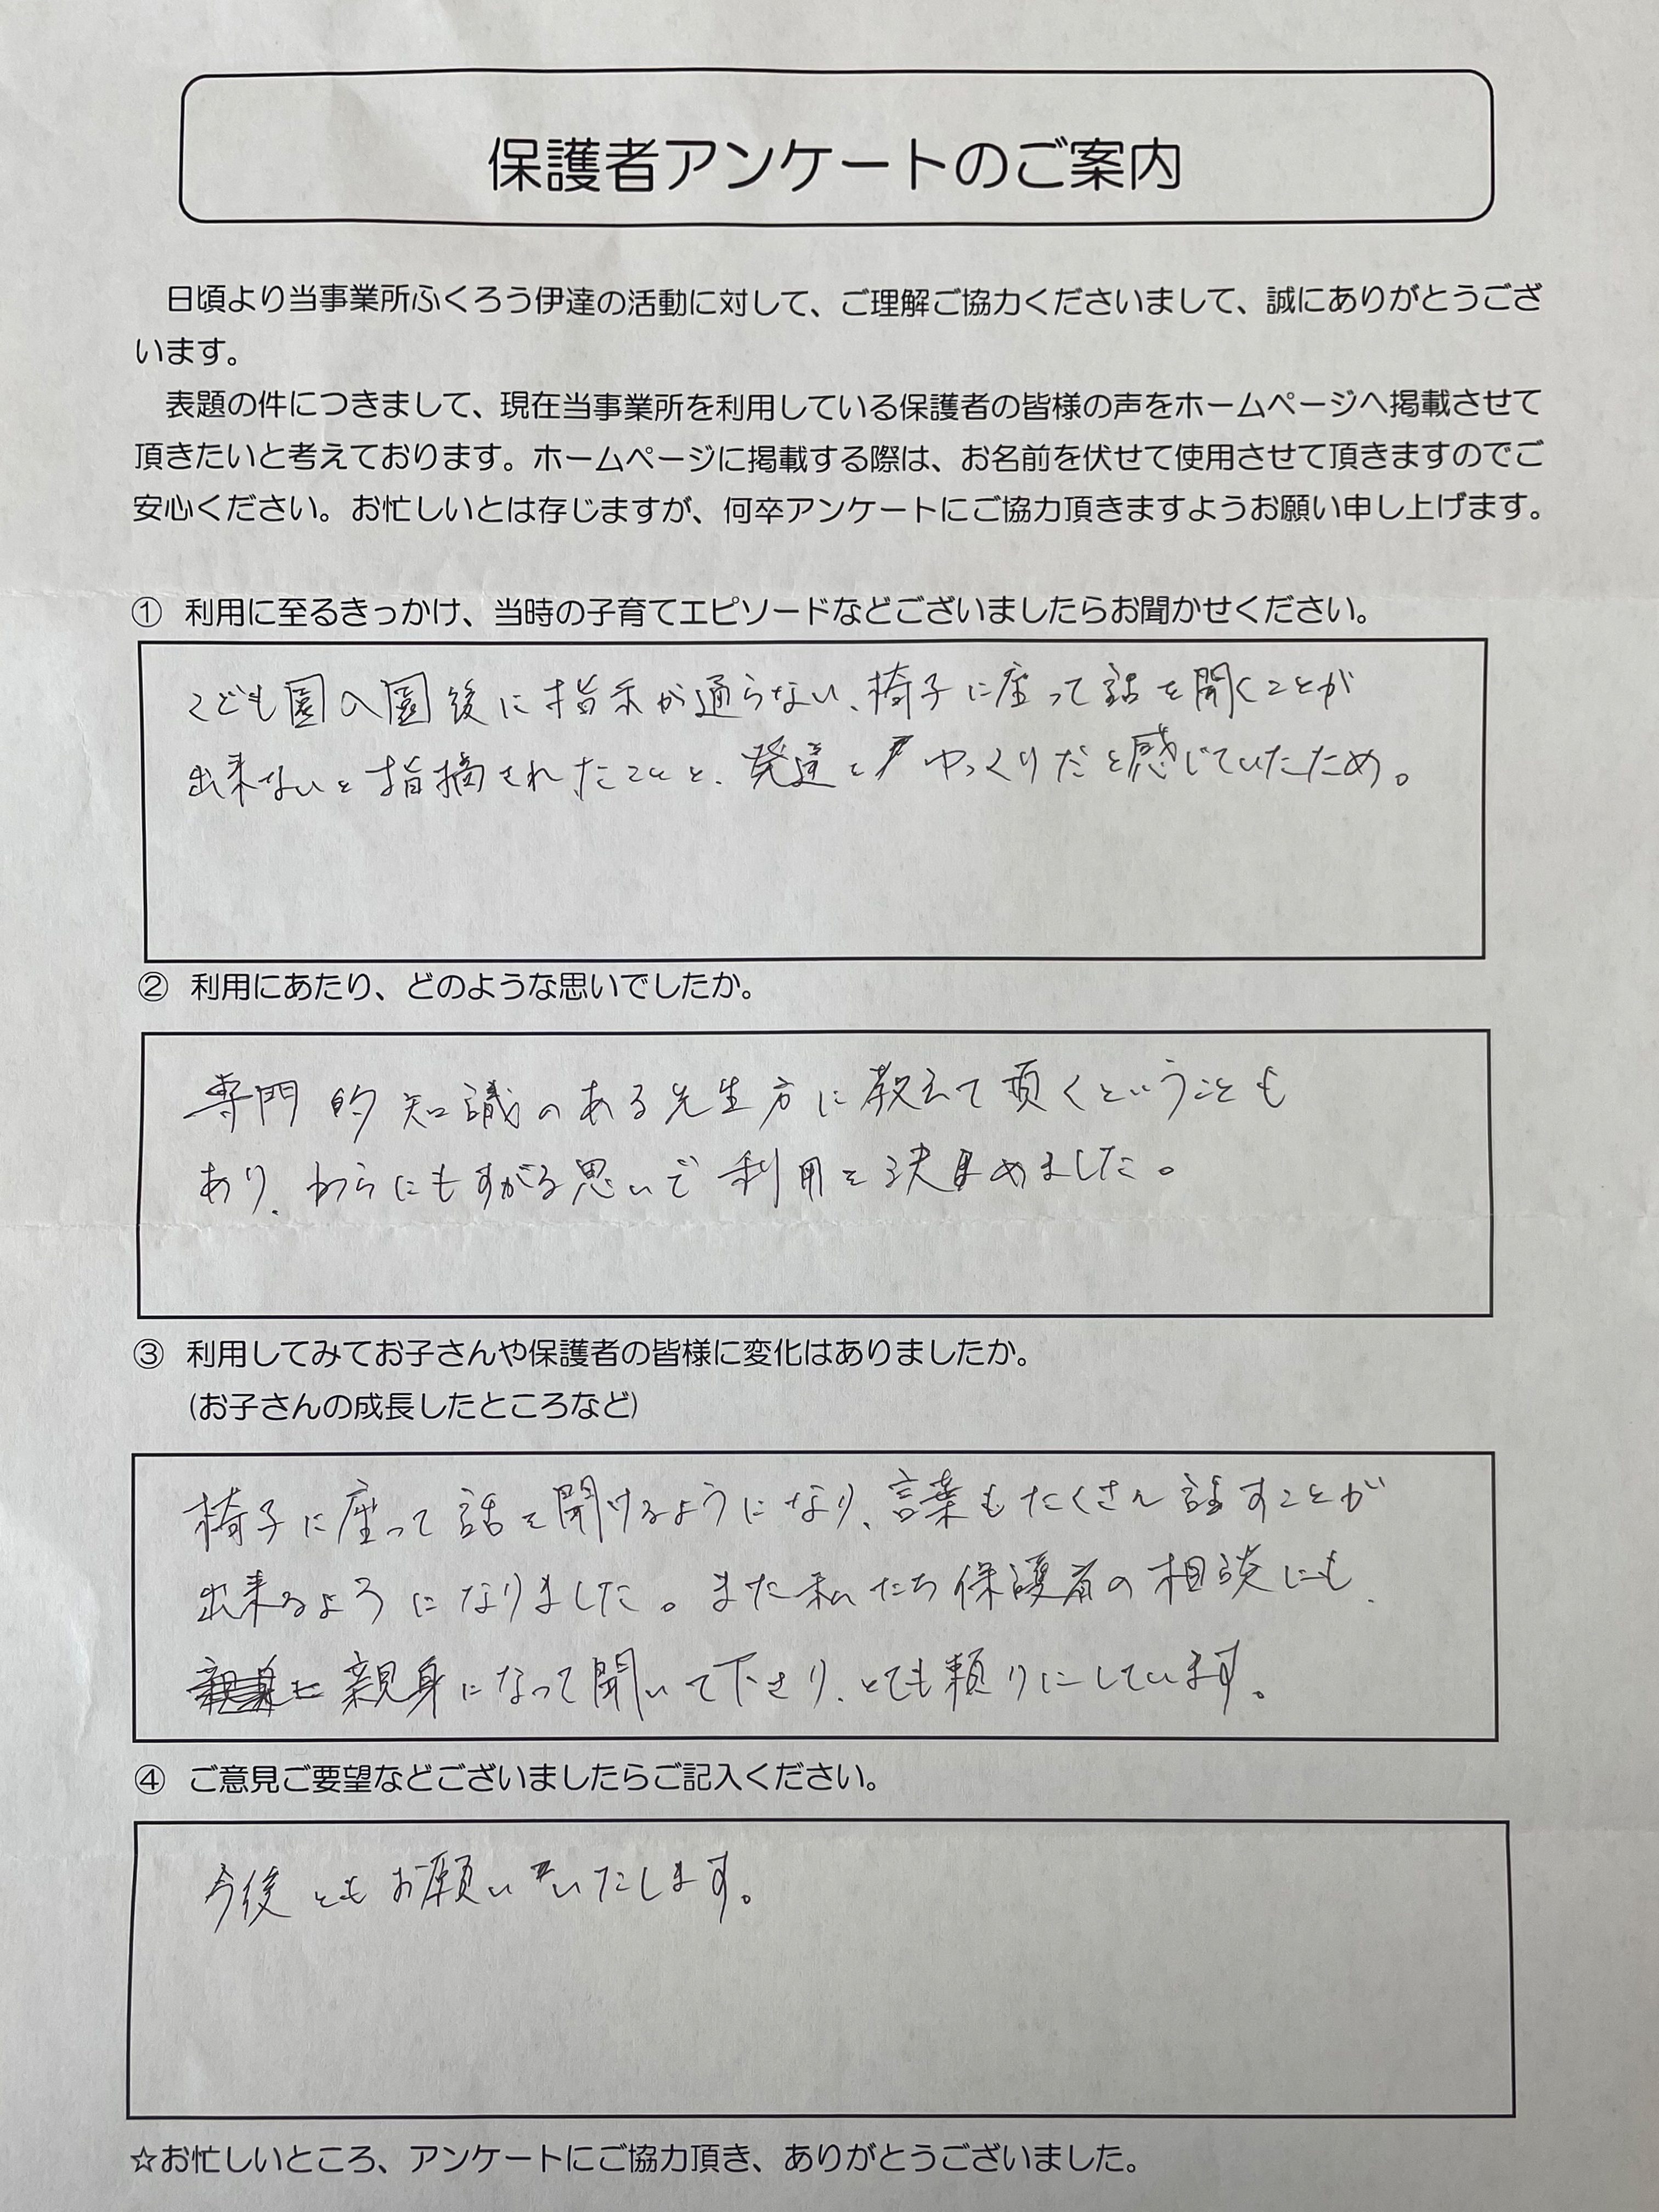 保護者アンケートのご案内
日頃より当事業所ふくろう伊達の活動に対して、ご理解ご協力くださいまして、誠にありがとうござ
います。
表題の件につきまして、現在当事業所を利用している保護者の皆様の声をホームページへ掲載させて
頂きたいと考えております。ホームページに掲載する際は、お名前を伏せて使用させて頂きますのでご
安心ください。お忙しいとは存じますが、何卒アンケートにご協力頂きますようお願い申し上げます。
① 利用に至るきっかけ、当時の子育てエピソードなどございましたらお聞かせください。
こども園入園後に指示が通らない、椅子に座って話を聞くことが
出来ないと指摘されたことと、発達とゆっくりだと感じていたため。
② 利用にあたり、どのような思いでしたか。
専門的知識のある先生方に教えて頂くということも
あり、わらにもすがる思いで利用を決めました。
③ 利用してみてお子さんや保護者の皆様に変化はありましたか。
(お子さんの成長したところなど)
椅子に座って話を聞けるようになり、言葉もたくさん話すことが
出来るようになりました。また私たち保護者の相談にも、
親身になって聞いて下さり、とても頼りにしています。
④ ご意見ご要望などございましたらご記入ください。
今後ともお願いいたします。
☆お忙しいところ、アンケートにご協力頂き、ありがとうございました。